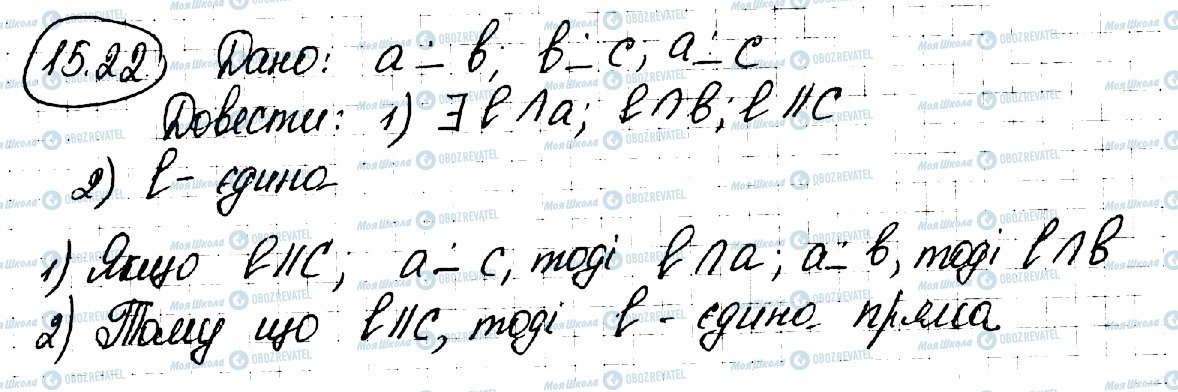 15.22 Дано: a ∸ b; b ∸ c; a ∸ c
Довести: 1) ∃ l ∩ a; l ∩ b; l || c
2) l - єдина
1) Якщо l || c; a ∸ c, тоді l ∩ a; a ∸ b, тоді l ∩ b
2) Тому що l || c, тоді l - єдина пряма